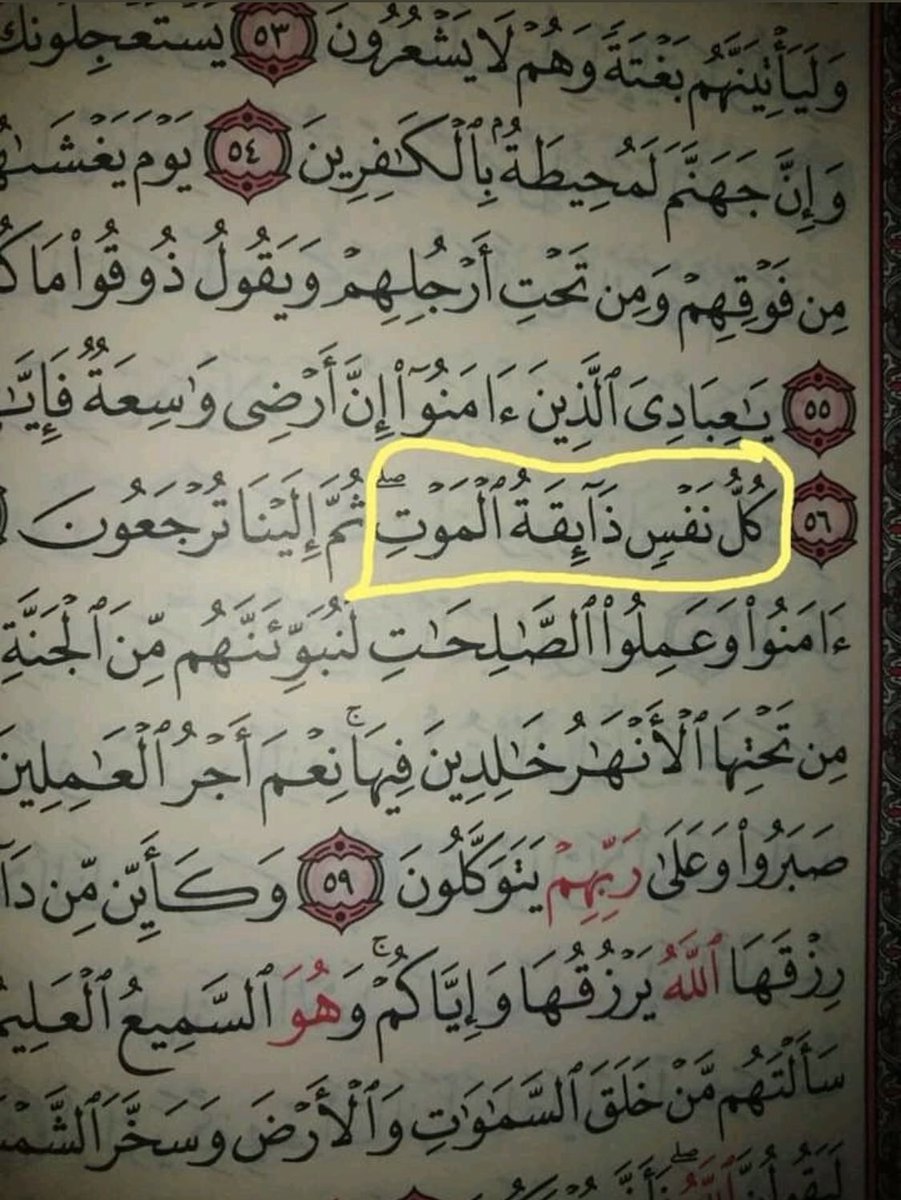 وَلَيَأۡتِيَنَّهُم بَغۡتَةٗ وَهُمۡ لَا يَشۡعُرُونَ ٥٣ يَسۡتَعۡجِلُونَكَ
وَإِنَّ جَهَنَّمَ لَمُحِيطَةُۢ بِٱلۡكَٰفِرِينَ ٥٤ يَوۡمَ
مِن فَوۡقِهِمۡ وَمِن تَحۡتِ أَرۡجُلِهِمۡ وَيَقُولُ ذُوقُواْ مَا
٥٥ يَٰعِبَادِيَ ٱلَّذِينَ ءَامَنُوٓاْ إِنَّ أَرۡضِي وَٰسِعَةٞ
٥٦ كُلُّ نَفۡسٖ ذَآئِقَةُ ٱلۡمَوۡتِۖ ثُمَّ إِلَيۡنَا تُرۡجَعُونَ
ءَامَنُواْ وَعَمِلُواْ ٱلصَّٰلِحَٰتِ لَنُبَوِّئَنَّهُم مِّنَ ٱلۡجَنَّةِ
مِن تَحۡتِهَا ٱلۡأَنۡهَٰرُ خَٰلِدِينَ فِيهَاۚ نِعۡمَ أَجۡرُ ٱلۡعَٰمِلِينَ
صَبَرُواْ وَعَلَىٰ رَبِّهِمۡ يَتَوَكَّلُونَ ٥٩ وَكَأَيِّن مِّن
رِزۡقَهَا ٱللَّهُ يَرۡزُقُهَا وَإِيَّاكُمۡۚ وَهُوَ ٱلسَّمِيعُ ٱلۡعَلِيمُ
سَأَلۡتَهُم مَّنۡ خَلَقَ ٱلسَّمَٰوَٰتِ وَٱلۡأَرۡضَ وَسَخَّرَ